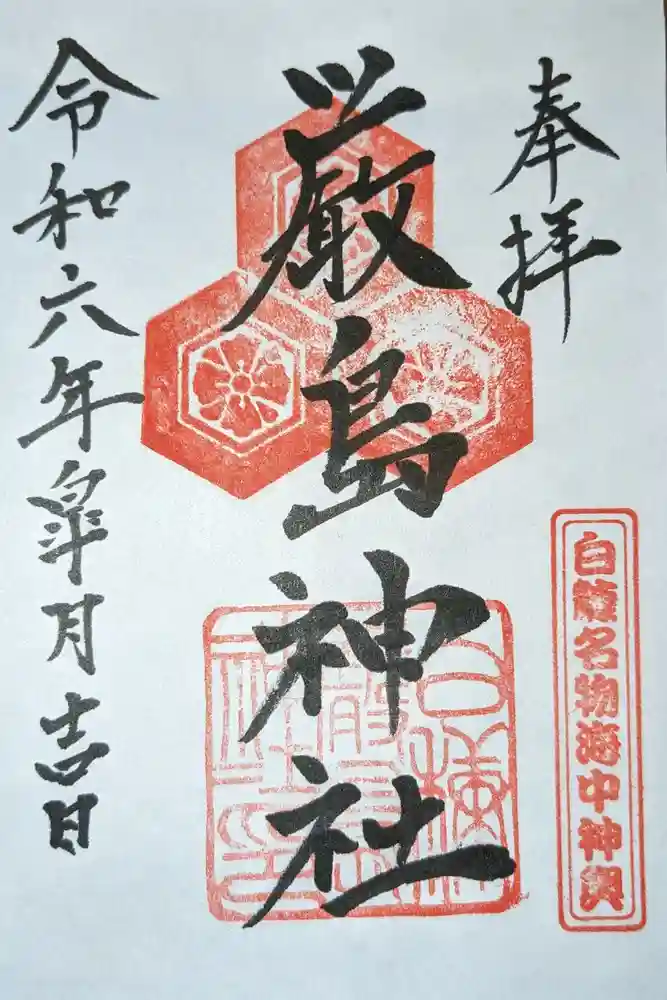 奉拝
白糠名物海中神輿
厳島神社
令和六年皐月吉日